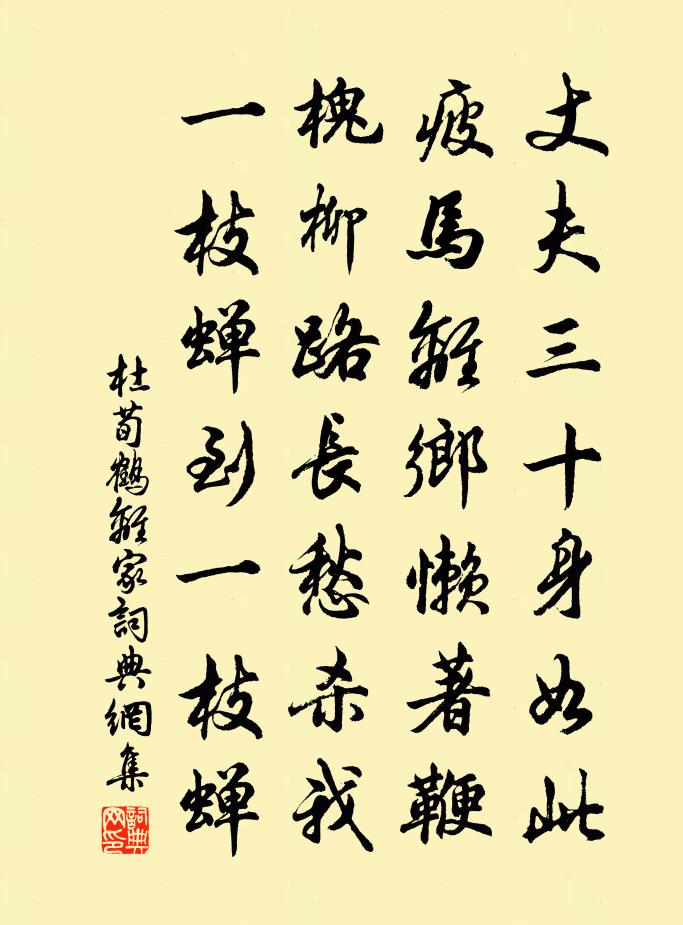 丈夫三十身如此
疲馬離鄉懶著鞭
槐柳路長愁杀我
一枝蝉到一枝蝉
杜荀鶴離家詞典網集
詞典网印